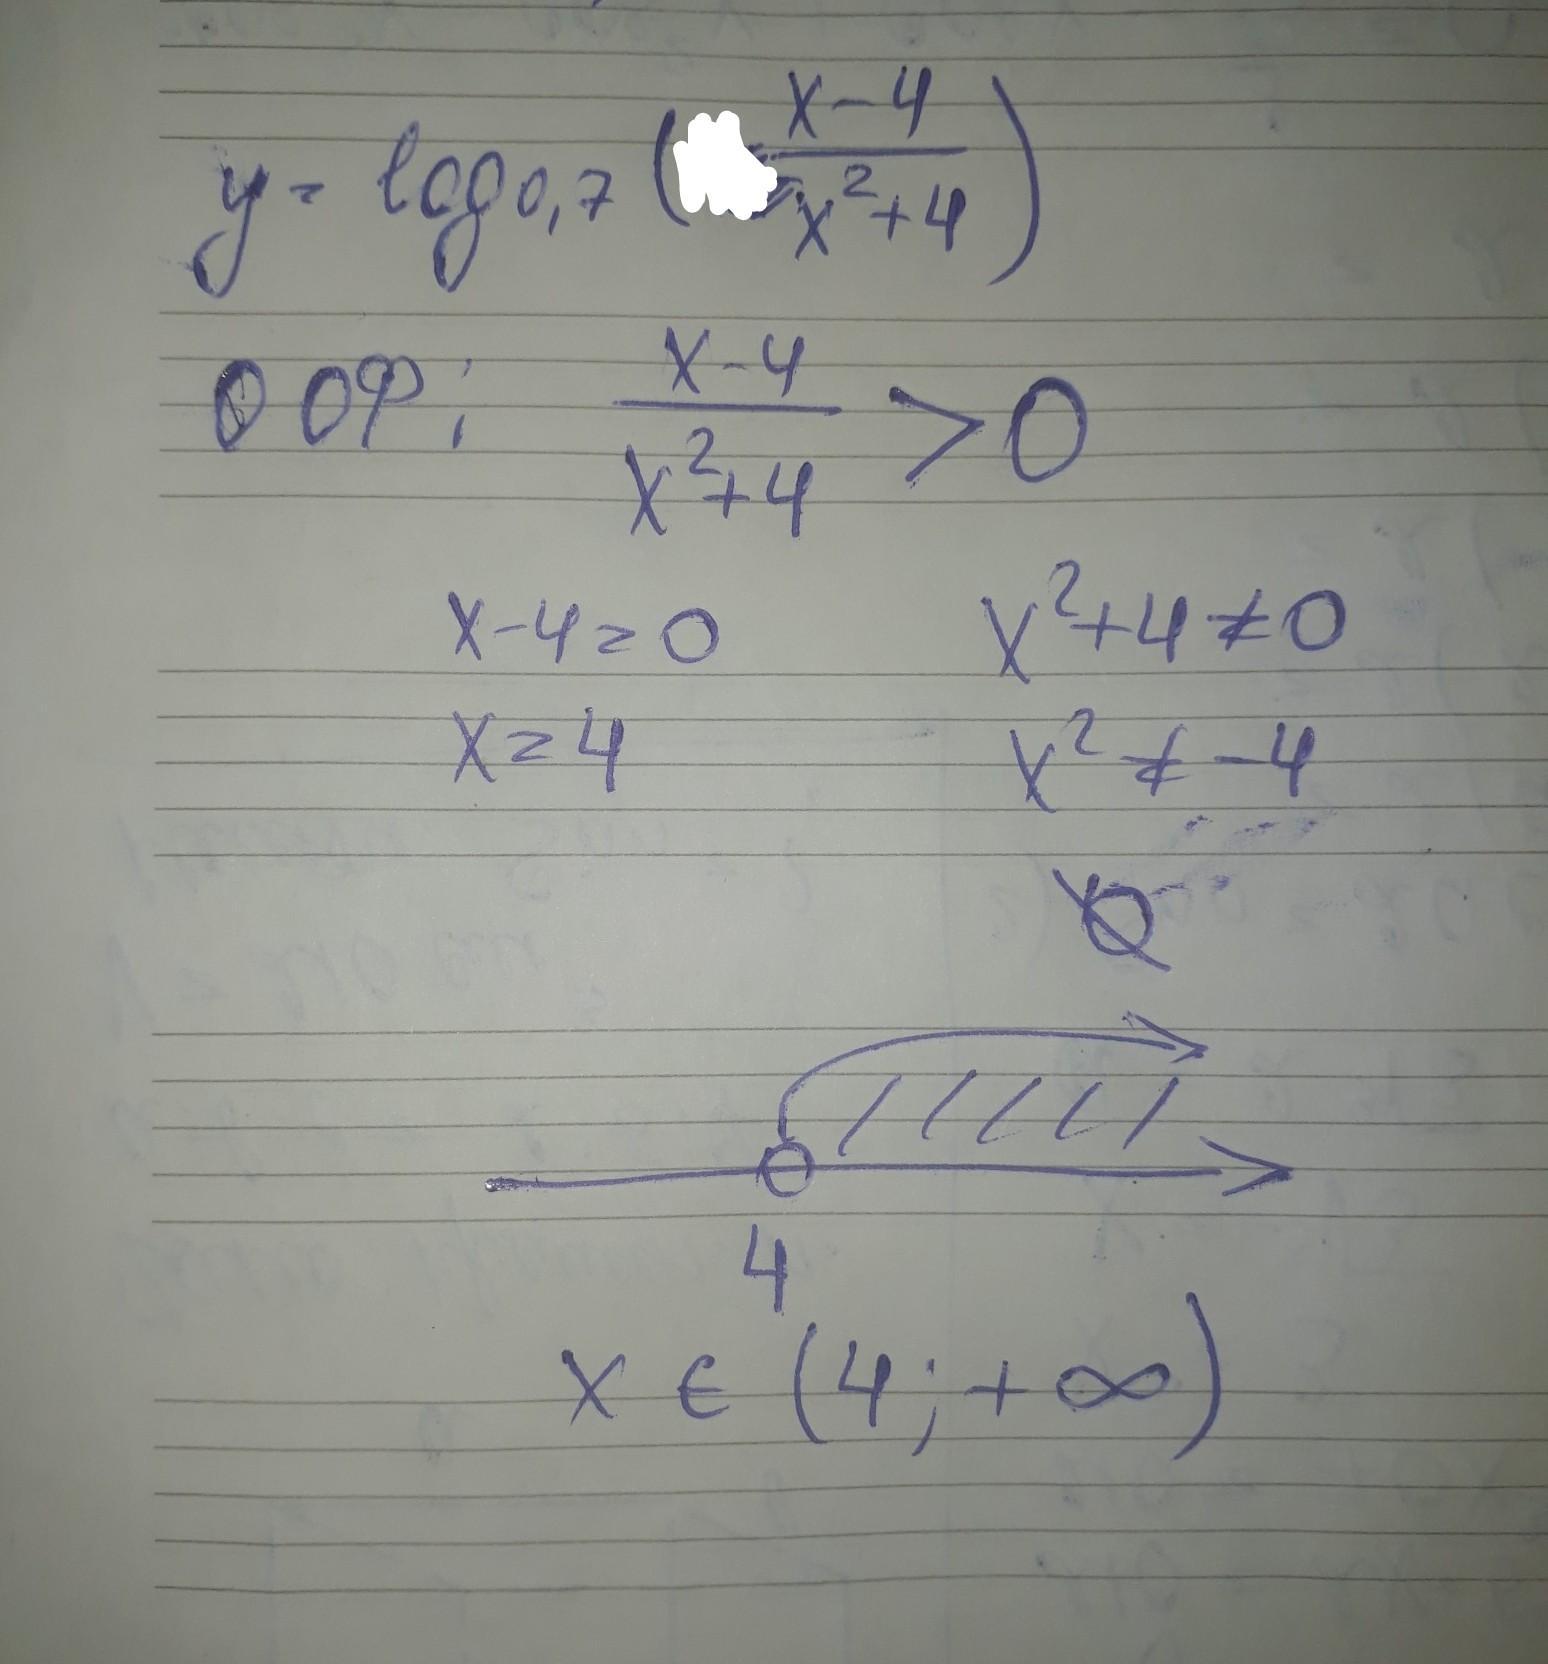 y = log₀,₇ ( (x-4)/(x²+4) )
ООФ: (x-4)/(x²+4) > 0
x-4=0 x²+4≠0
x=4 x²≠-4
∅
4
x ∈ (4; +∞)